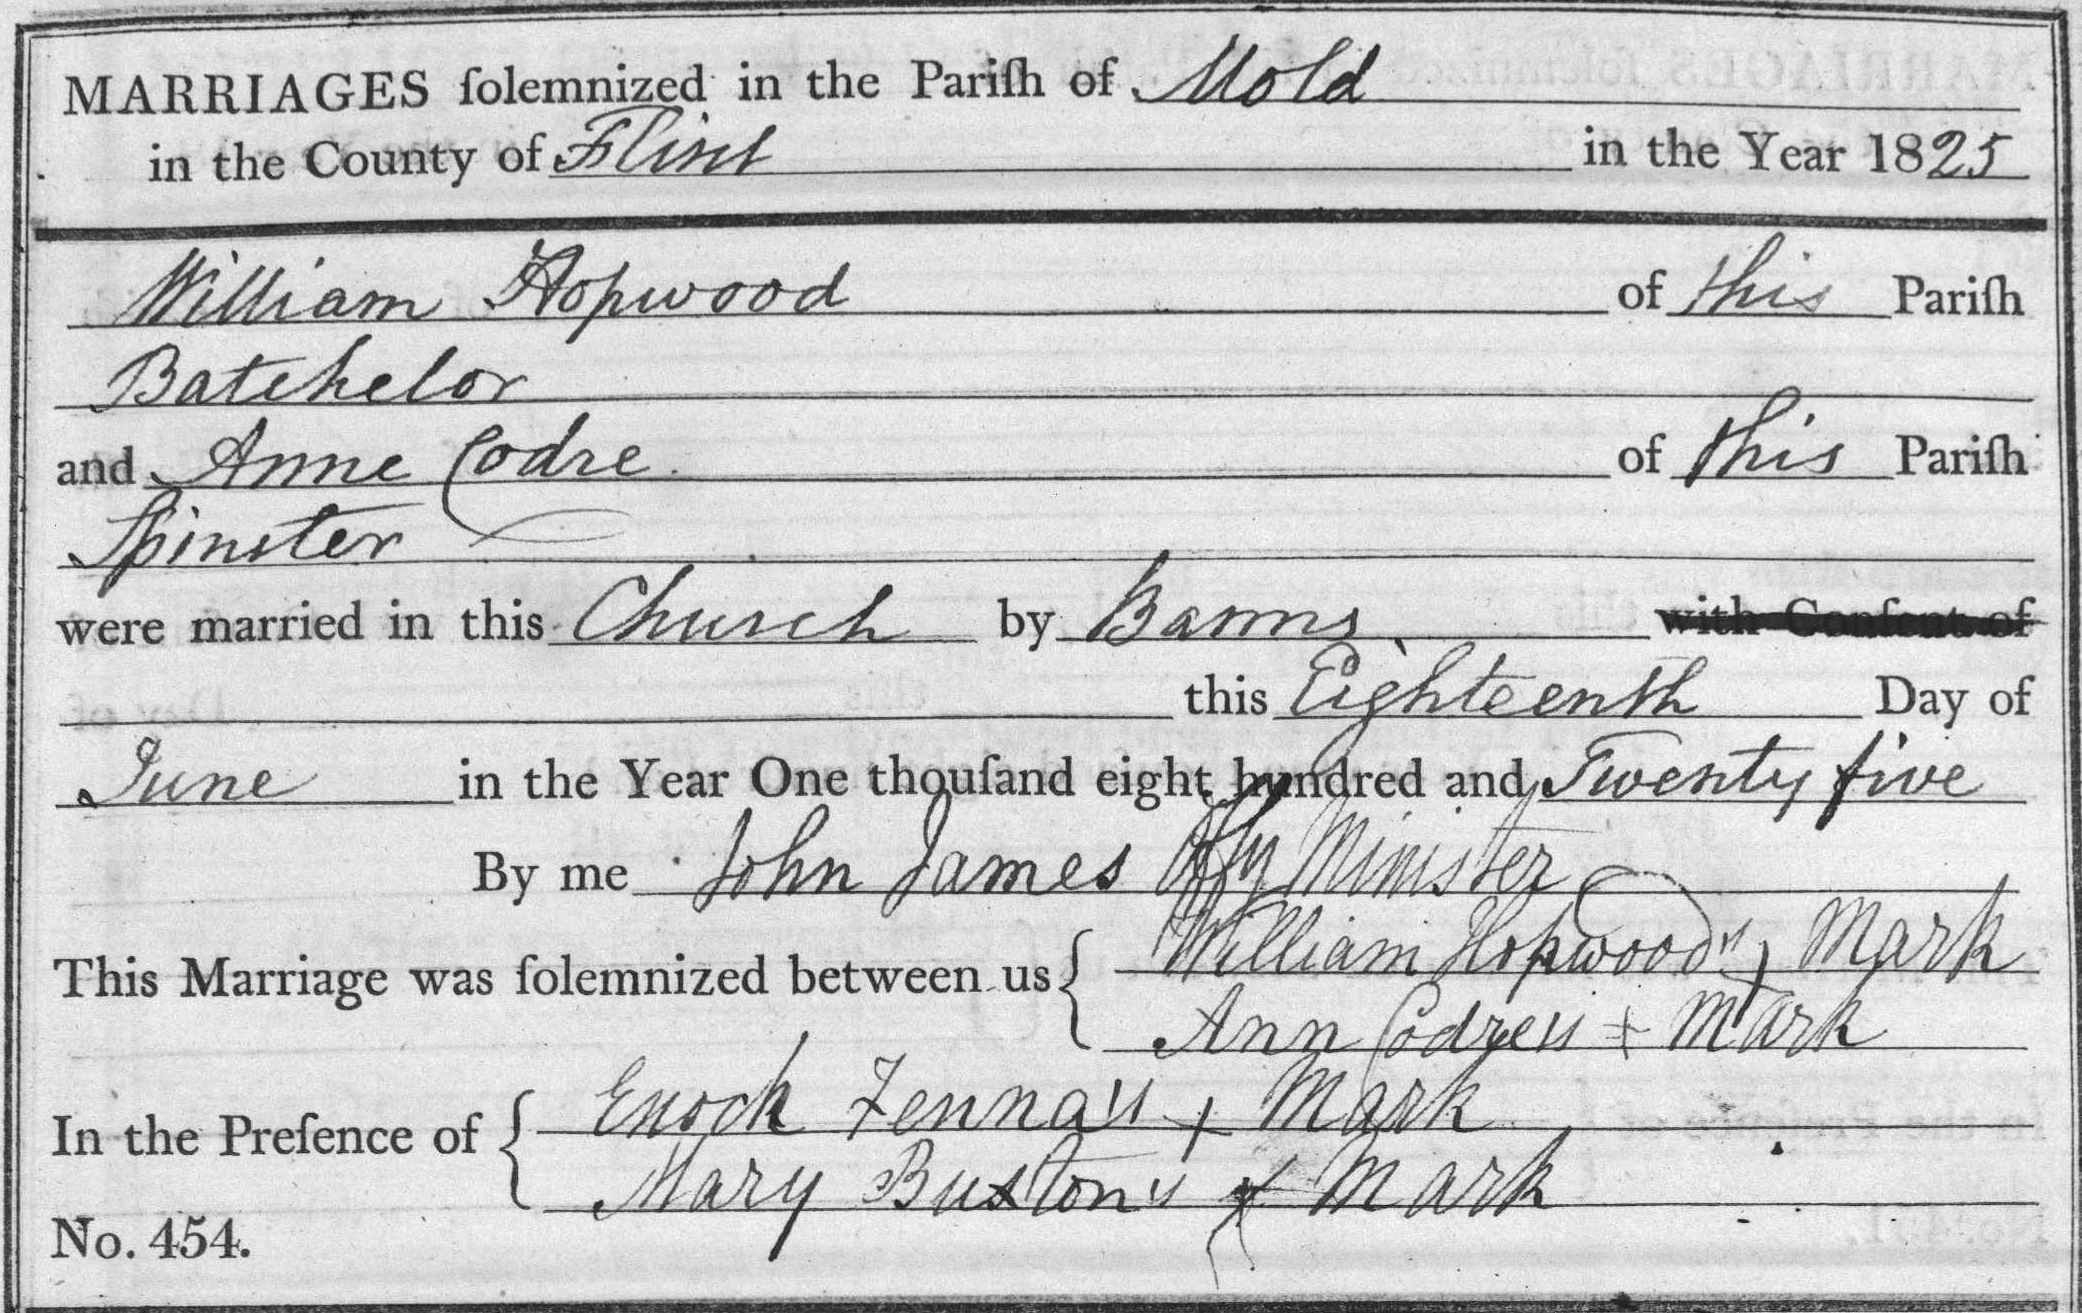 MARRIAGES ſolemnized in the Pariſh of Mold
in the County of Flint in the Year 1825
William Hopwood of this Pariſh
Batchelor
and Anne Codre of this Pariſh
Spinster
were married in this Church by Banns with Conſent of
this Eighteenth Day of
June in the Year One thouſand eight hundred and Twenty five
By me John James Offg Minister
This Marriage was ſolemnized between us { William Hopwood's + Mark
Ann Codre's + Mark
In the Preſence of { Enoch Fenna's + Mark
Mary Buxton's + Mark
No. 454.